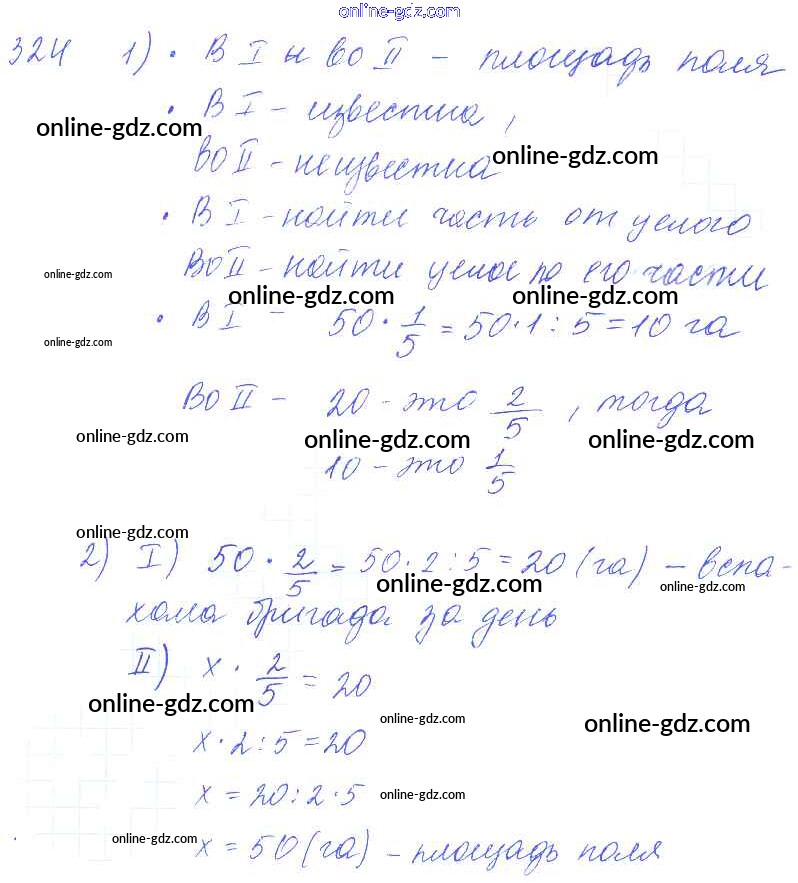 online-gdz.com
324 1) • В I и во II – площадь поля
• В I – известна,
online-gdz.com
во II – неизвестна online-gdz.com
• В I – найти часть от целого
Во II – найти целое по его части
online-gdz.com
online-gdz.com online-gdz.com
• В I – 50 · 1/5 = 50·1 : 5 = 10 га
online-gdz.com
Во II – 20 – это 2/5, тогда
online-gdz.com online-gdz.com online-gdz.com
10 – это 1/5
online-gdz.com
2) I) 50 · 2/5 = 50·2 : 5 = 20 (га) – вспа-
online-gdz.com online-gdz.com
хала бригада за день
II) x · 2/5 = 20
online-gdz.com online-gdz.com online-gdz.com
x · 2 : 5 = 20
x = 20 : 2 · 5 online-gdz.com
online-gdz.com x = 50 (га) – площадь поля